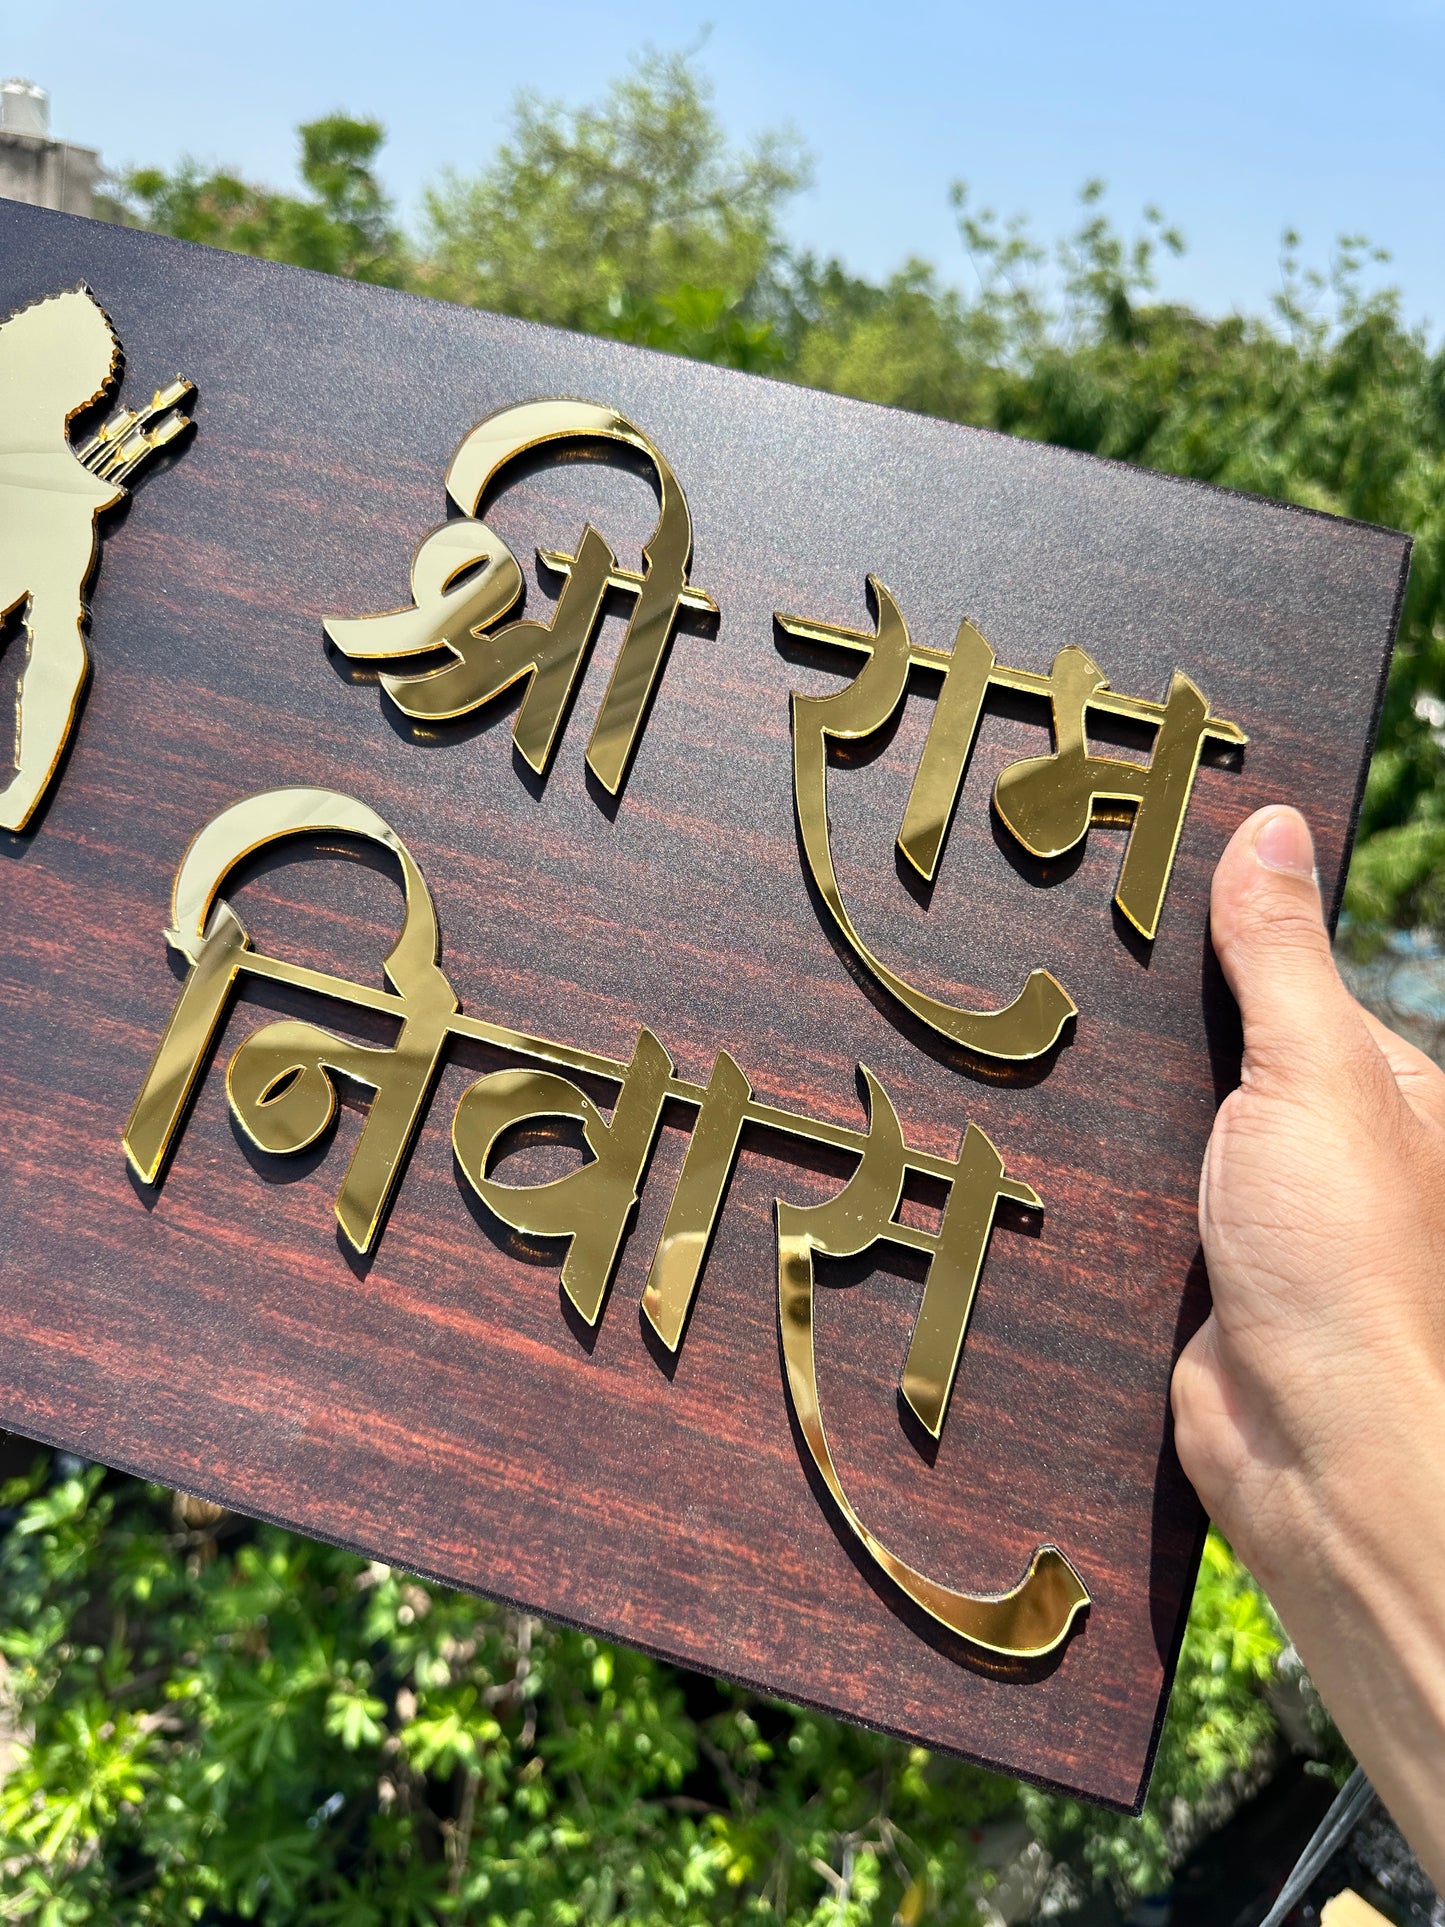 श्री राम
निवास